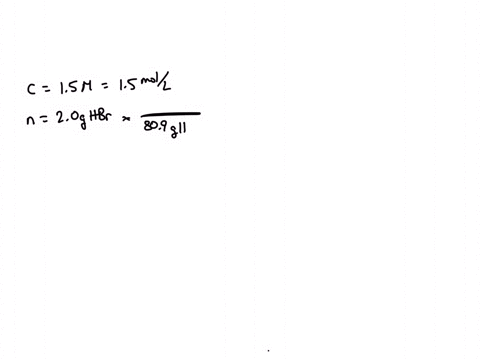 C = 1.5 M = 1.5 mol/L
n = 2.0g HBr × /80.9 g